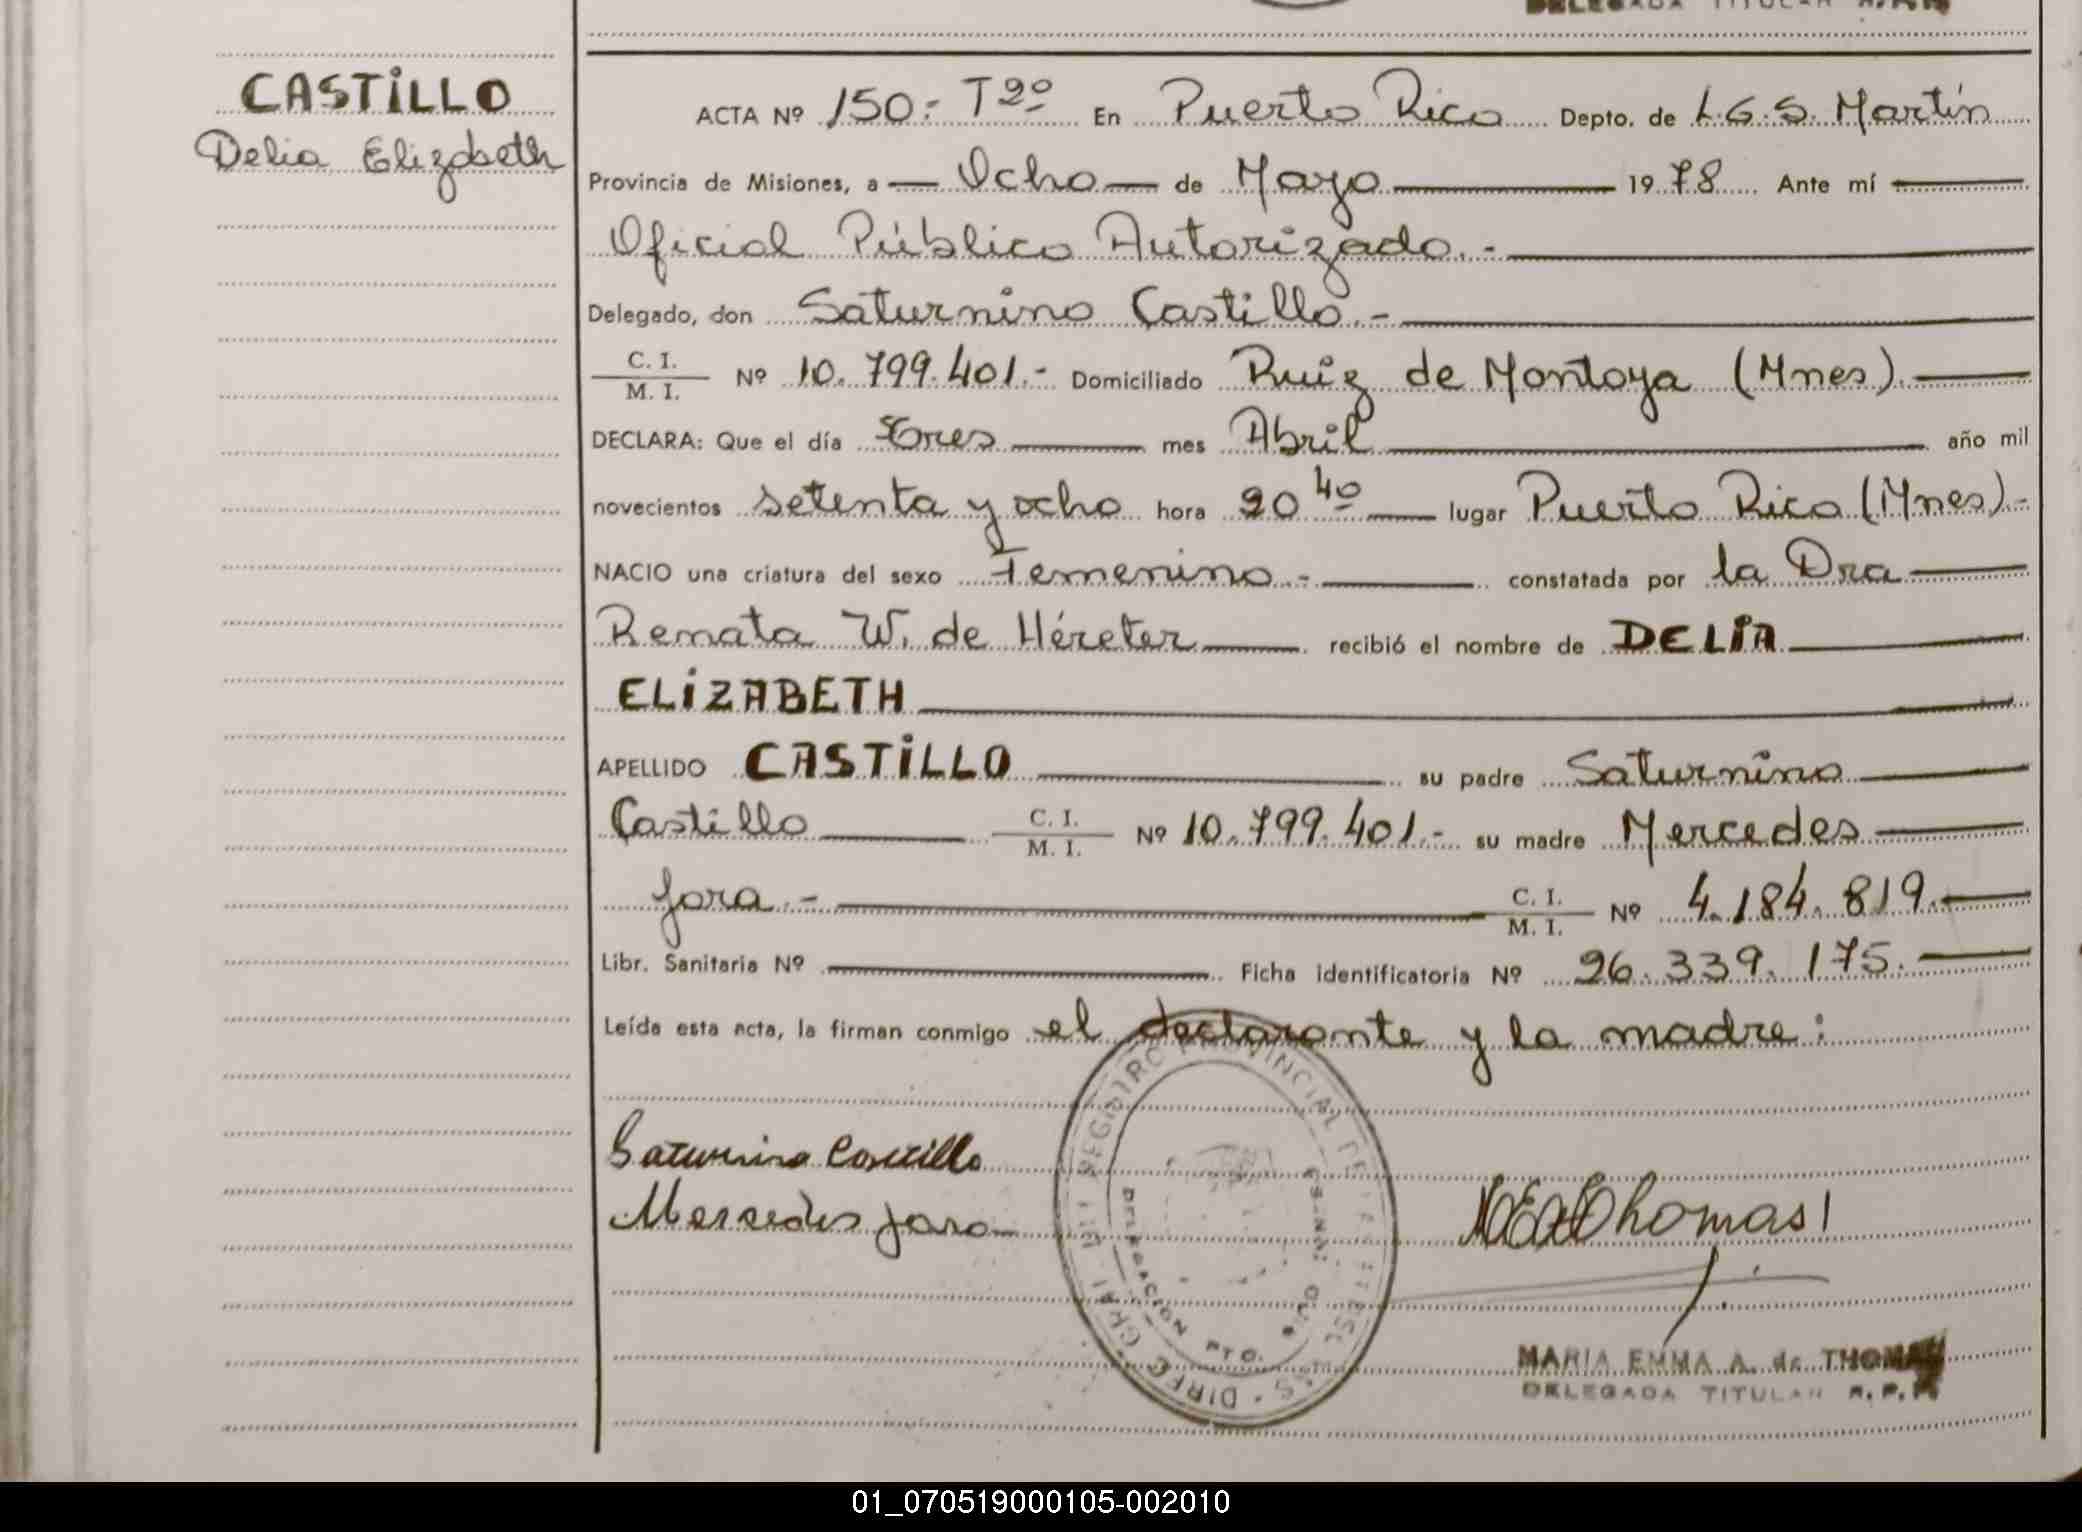 DELEGADA TITULAR R.P.P.
CASTILLO
Delia Elizabeth
ACTA Nº 150.- Tº 2º En Puerto Rico Depto. de L.G.S. Martín
Provincia de Misiones, a — Ocho — de Mayo 1978 Ante mí
Oficial Público Autorizado.-
Delegado, don Saturnino Castillo.-
C. I.
M. I. Nº 10.799.401.- Domiciliado Ruiz de Montoya (Mnes).
DECLARA: Que el día Tres mes Abril año mil
novecientos setenta y ocho hora 20 40 lugar Puerto Rico (Mnes)-
NACIO una criatura del sexo Femenino.- constatada por la Dra
Renata W. de Héreter recibió el nombre de DELIA
ELIZABETH
APELLIDO CASTILLO su padre Saturnino
Castillo C. I.
M. I. Nº 10.799.401.- su madre Mercedes
Jara.- C. I.
M. I. Nº 4.184.819.
Libr. Sanitaria Nº Ficha identificatoria Nº 26.339.175.
Leída esta acta, la firman conmigo el declarante y la madre:
Saturnino Castillo
Mercedes Jara
Thomas
REGISTRO PROVINCIAL DE LAS PERSONAS
DELEGACION PTO. RICO
MARIA EMMA A. de THOMAS
DELEGADA TITULAR R.P.P.
01_070519000105-002010